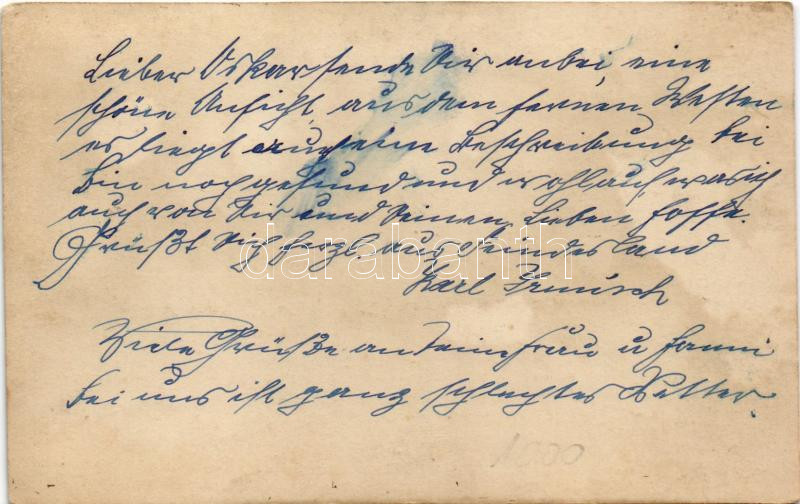 Lieber Oskar sende Dir anbei eine
schöne Ansicht aus dem fernen Westen
es liegt auch eine Beschreibung bei
bin noch gesund und wohlauf was ich
auch von Dir und Deinen Lieben hoffe.
Grüßt Dich herzl. aus Feindesland
Karl
Viele Grüße an Deine Frau u Fanni
bei uns ist ganz schlechtes Wetter.
1000
darabanth